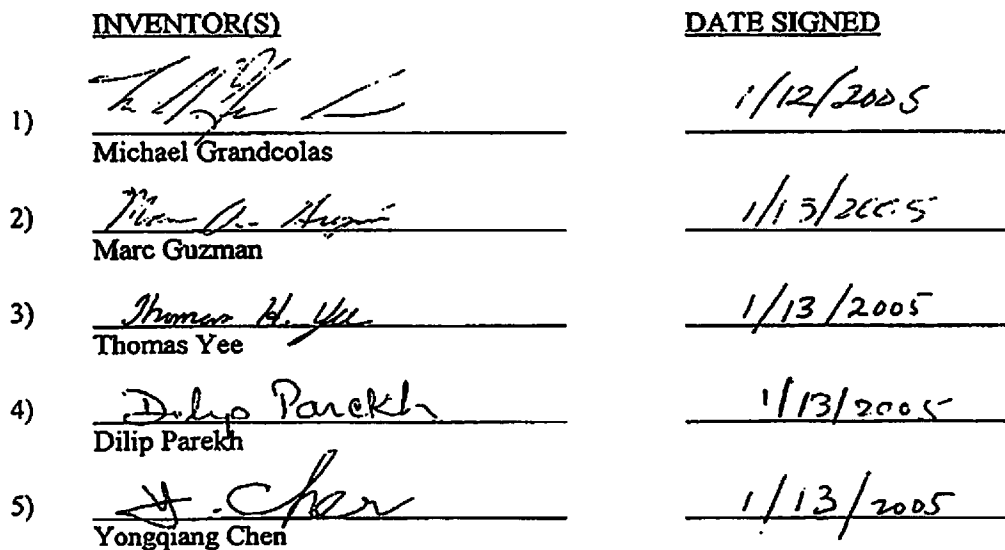 INVENTOR(S) DATE SIGNED
1/12/2005
1)
Michael Grandcolas
2) 1/13/2005
Marc Guzman
3) Thomas H. Yee 1/13/2005
Thomas Yee
4) Dilip Parekh 1/13/2005
Dilip Parekh
5) Y. Chen 1/13/2005
Yongqiang Chen